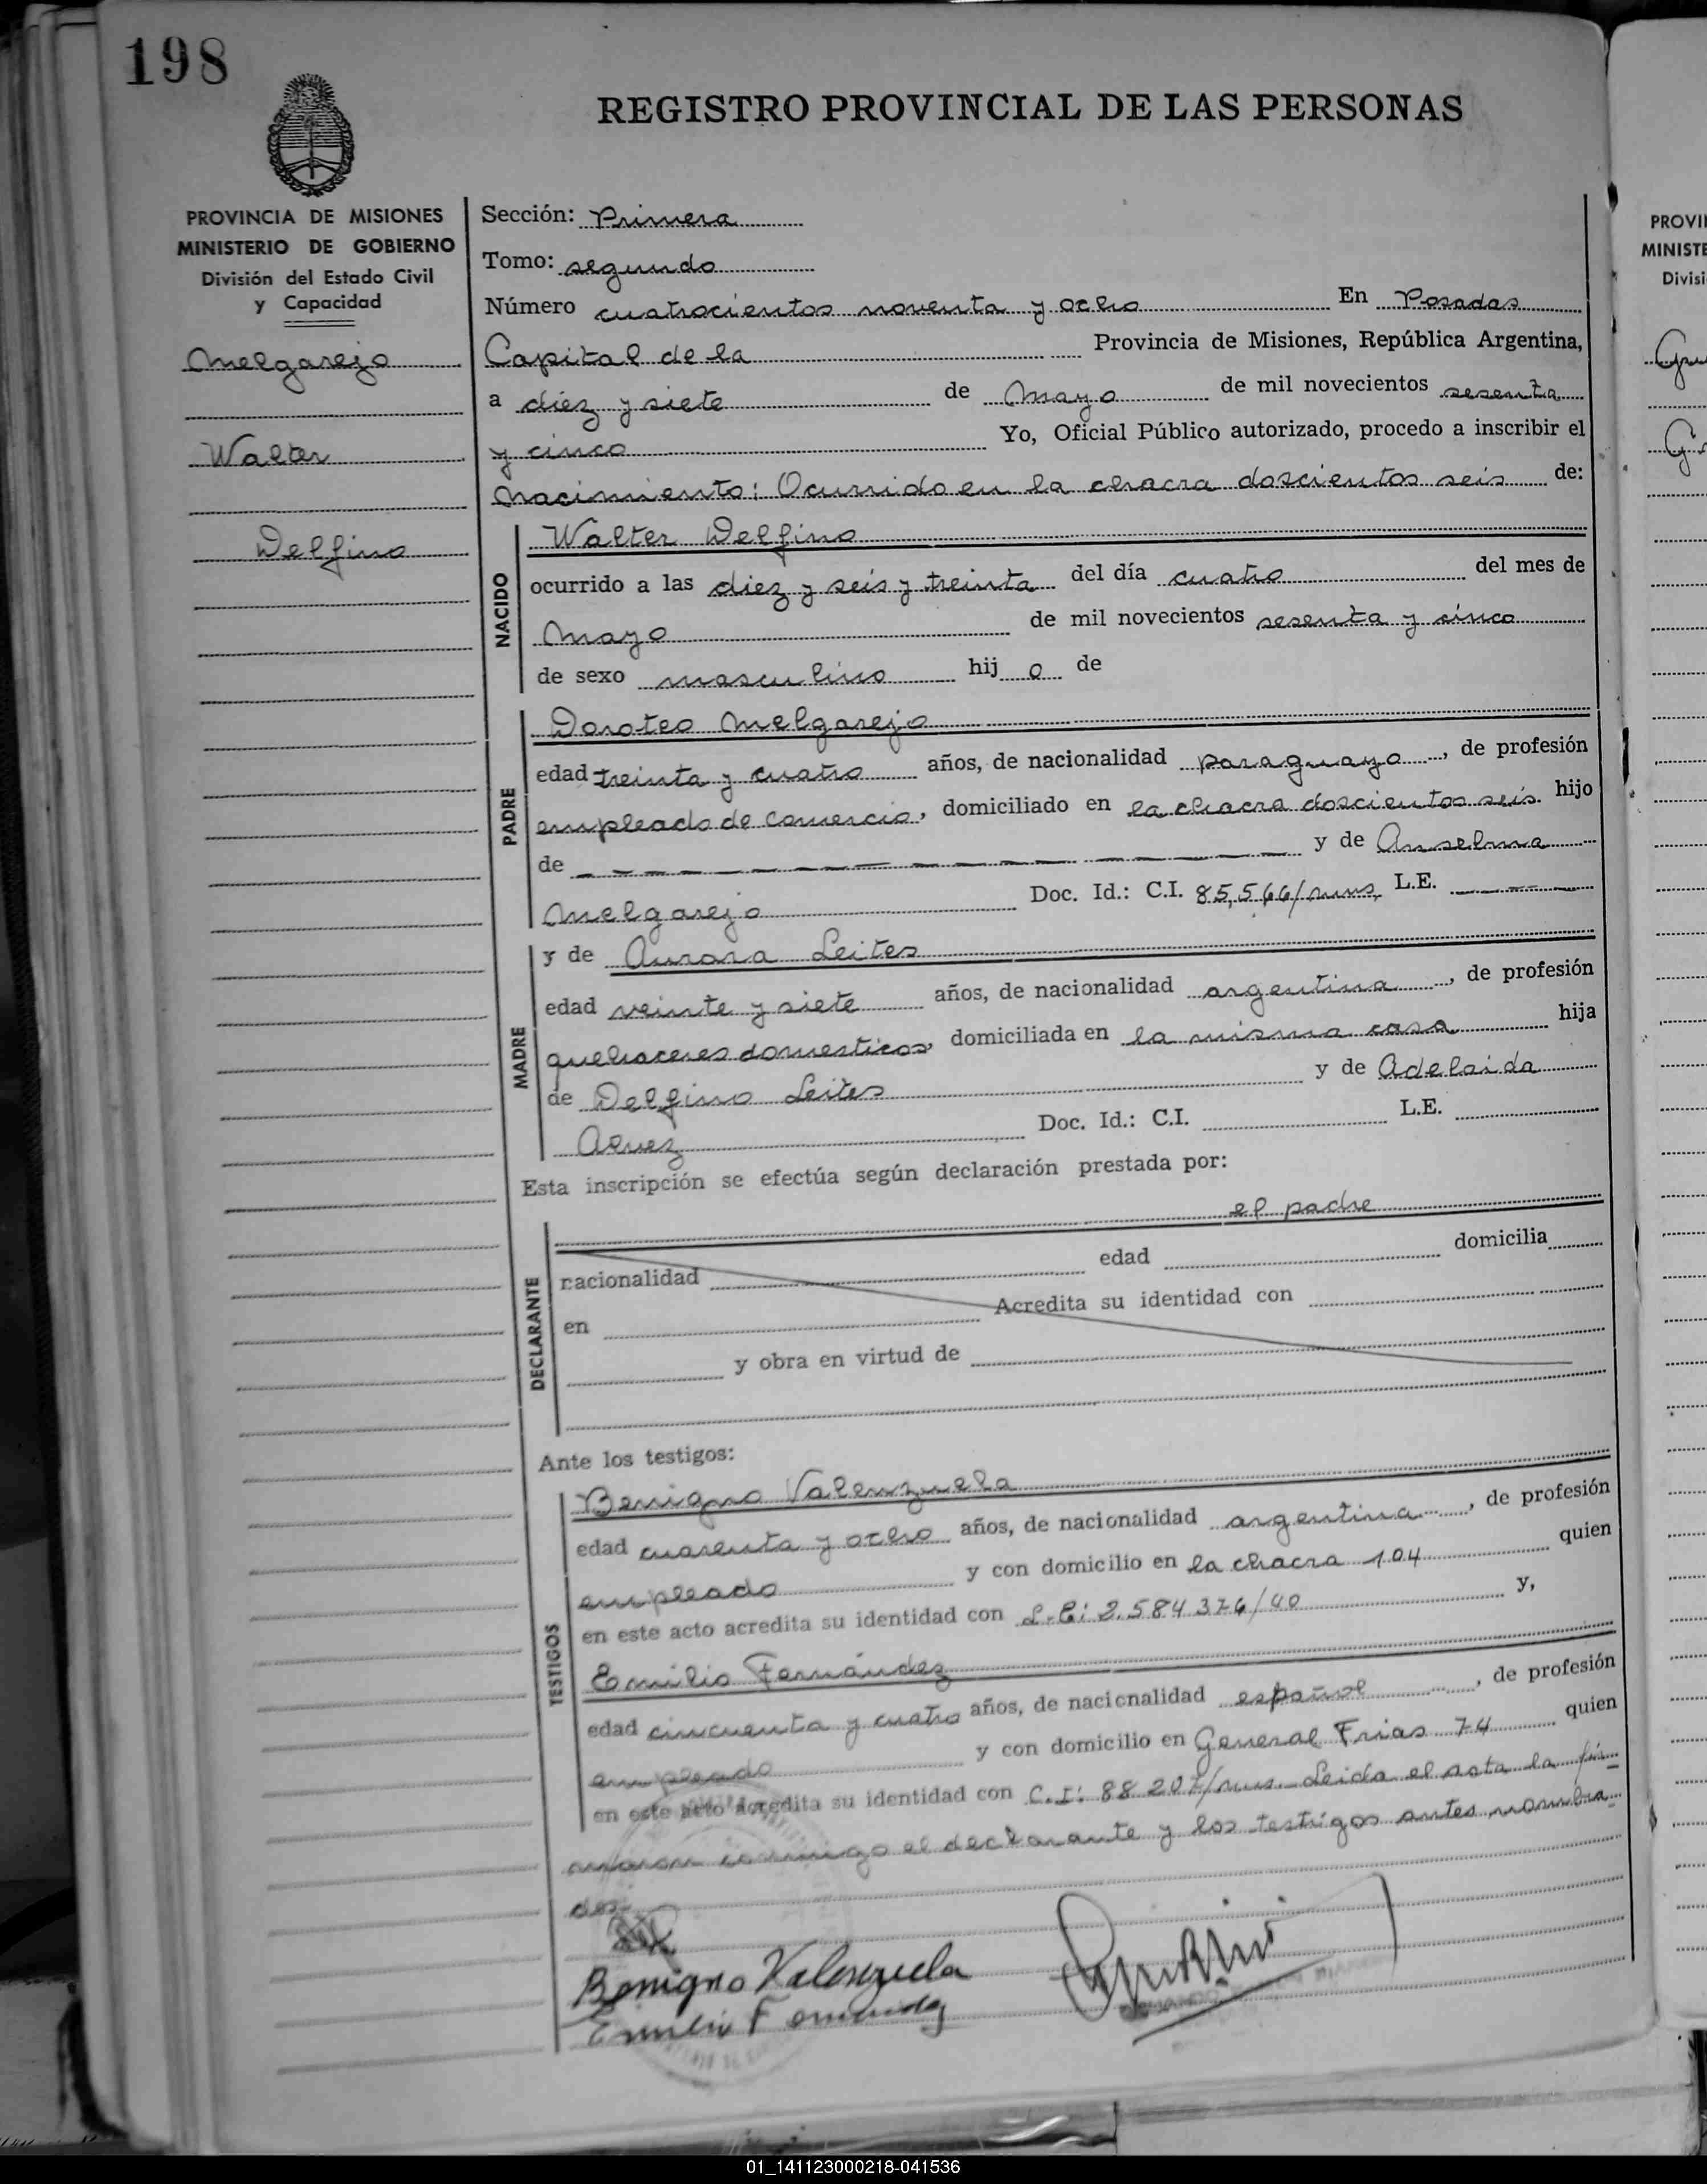 198
REGISTRO PROVINCIAL DE LAS PERSONAS
PROVINCIA DE MISIONES
MINISTERIO DE GOBIERNO
División del Estado Civil
y Capacidad
Melgarejo
Walter
Delfino
Sección: Primera
Tomo: segundo
Número cuatrocientos noventa y ocho En Posadas
Capital de la Provincia de Misiones, República Argentina,
a diez y siete de Mayo de mil novecientos sesenta
y cinco Yo, Oficial Público autorizado, procedo a inscribir el
nacimiento: Ocurrido en la chacra doscientos seis de:
NACIDO
Walter Delfino
ocurrido a las diez y seis y treinta del día cuatro del mes de
Mayo de mil novecientos sesenta y cinco
de sexo masculino hij o de
PADRE
Doroteo Melgarejo
edad treinta y cuatro años, de nacionalidad paraguayo, de profesión
empleado de comercio, domiciliado en la chacra doscientos seis hijo
de y de Anselma
Melgarejo Doc. Id.: C.I. 85,566/mns, L.E.
MADRE
y de Aurora Leites
edad veinte y siete años, de nacionalidad argentina, de profesión
quehaceres domesticos, domiciliada en la misma casa hija
de Delfino Leites y de Adelaida
Doc. Id.: C.I. L.E.
Esta inscripción se efectúa según declaración prestada por:
el padre
DECLARANTE
nacionalidad edad domicilia
en Acredita su identidad con
y obra en virtud de
Ante los testigos:
TESTIGOS
Benigno Valenzuela
edad cuarenta y ocho años, de nacionalidad argentina, de profesión
empleado y con domicilio en la chacra 104 quien
en este acto acredita su identidad con L.E: 2.584 376/40 y,
Emilio Fernández
edad cincuenta y cuatro años, de nacionalidad español, de profesión
empleado y con domicilio en General Frias 74 quien
en este acto acredita su identidad con C.I: 88 207/mns. Leida el acta la fir_
maron conmigo el declarante y los testigos antes nombra_
dos.
Benigno Valenzuela
Emilio Fernandez
PROVI
MINISTE
Divisi
01_141123000218-041536